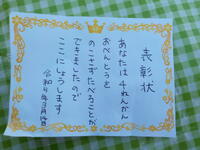 表彰状
あなたは4ねんかん
おべんとうを
のこさずたべることが
できましたので
ここにしょうします
令和4年3月14日